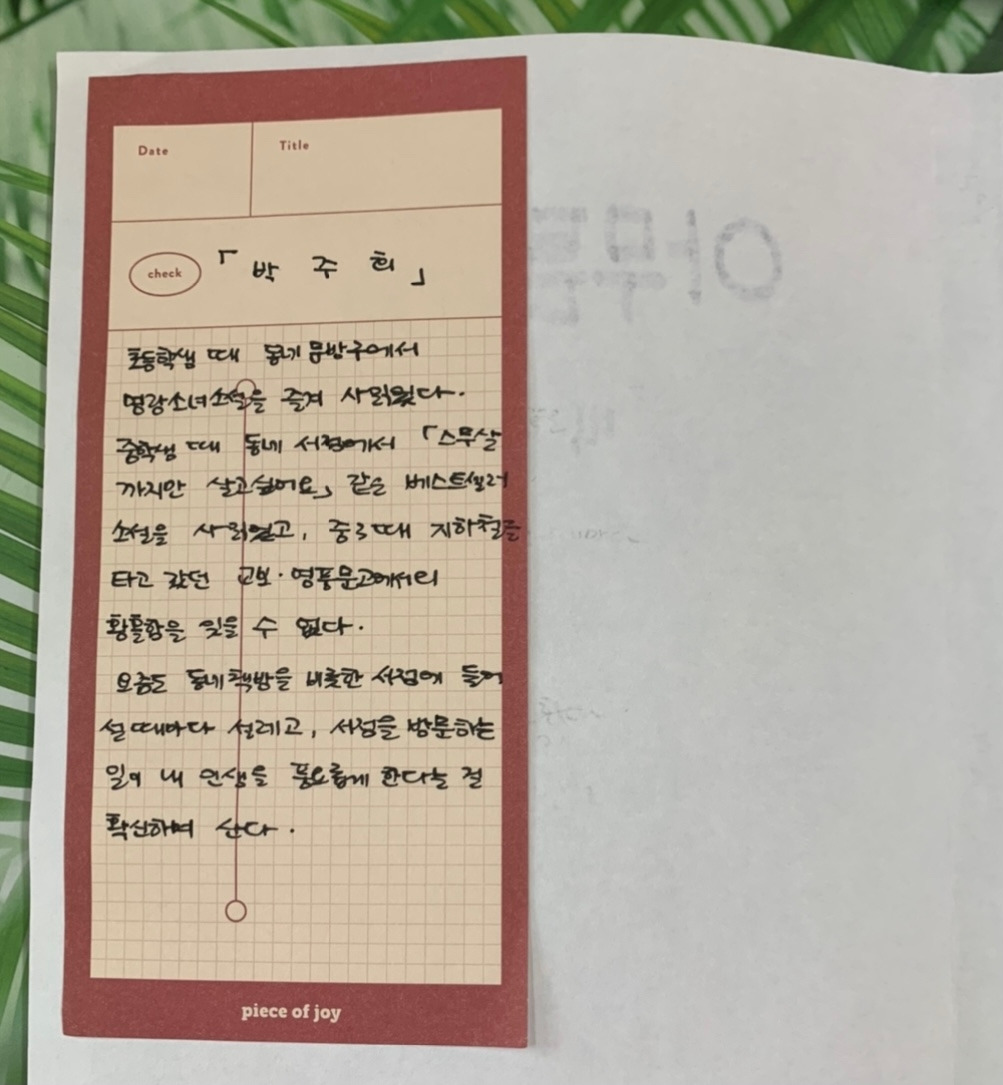 Date
Title
check
「박 주 희」
초등학생 때 동네 문방구에서
명랑소녀소설을 즐겨 사읽었다.
중학생 때 동네 서점에서 「스무살
까지만 살고싶어요」 같은 베스트셀러
소설을 사읽었고, 중3때 지하철을
타고 갔던 교보·영풍문고에서의
황홀함을 잊을 수 없다.
요즘도 동네책방을 비롯한 서점에 들어
설 때마다 설레고, 서점을 방문하는
일이 내 인생을 풍요롭게 한다는 걸
확신하며 산다.
piece of joy